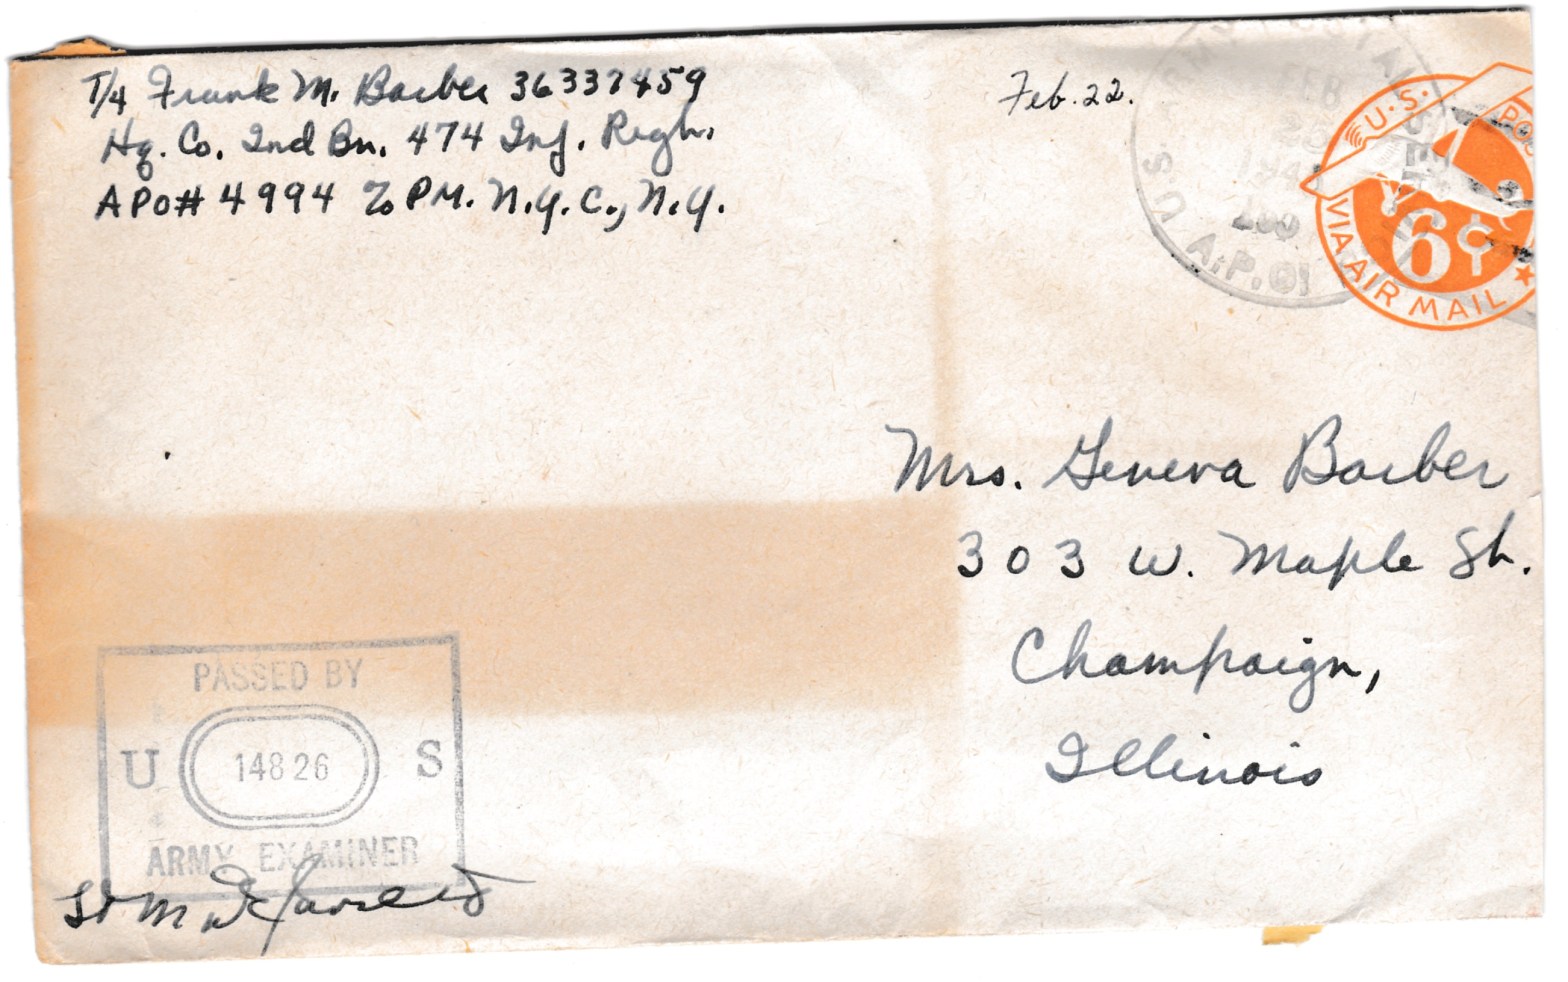 T/4 Frank M. Barber 36337459
Hq. Co. 2nd Bn. 474 Inf. Regt.
APO# 4994 % PM. N.Y.C., N.Y.
Feb. 22.
FEB
U.S. A.P.O.
U.S. POS
6¢
VIA AIR MAIL
Mrs. Geneva Barber
303 W. Maple St.
Champaign,
Illinois
PASSED BY
U 14826 S
ARMY EXAMINER